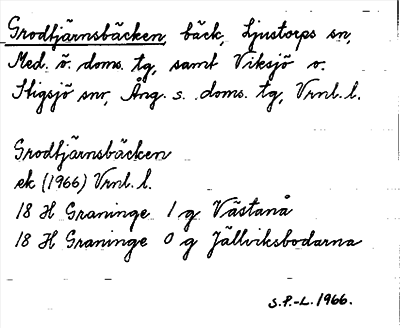 Grodtjärnsbäcken, bäck, Ljustorps sn,
Med. ö. doms. tg, samt Viksjö o.
Stigsjö snr, Ång. s. doms. tg, Vrnl. l.
Grodtjärnsbäcken
ek (1966) Vrnl. l.
18 H Graninge 1 g Västanå
18 H Graninge 0 g Jällviksbodarna
S.P.-L. 1966.